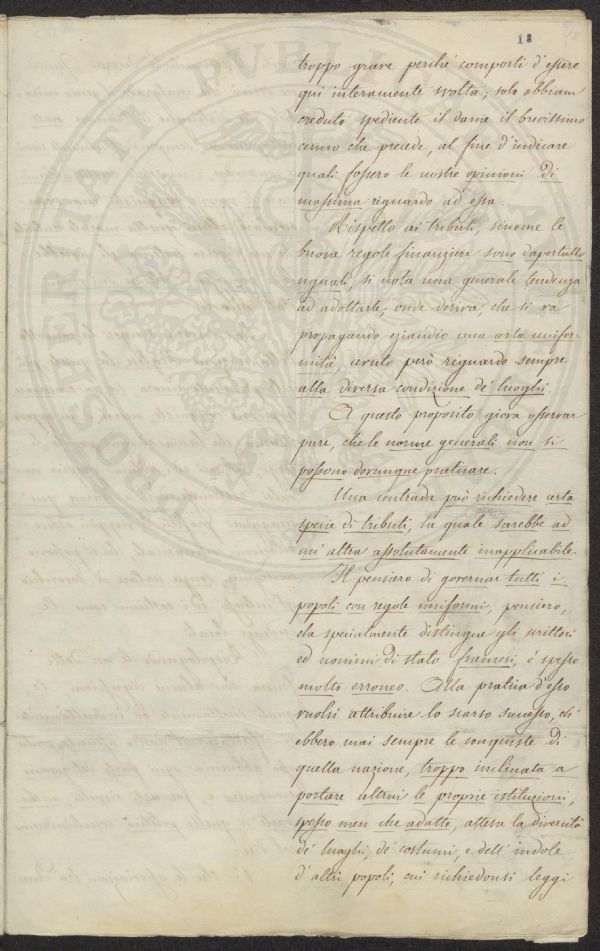 18
troppo grave perché comporti d'essere
qui interamente svolta; solo abbiam
creduto spediente il darne il brevissimo
cenno che precede, al fine d'indicare
quali fossero le nostre opinioni di
massima riguardo ad essa.
Rispetto ai tributi, siccome le
buone regole finanziere sono dapertutto
uguali, si nota una generale tendenza
ad adottarle; onde deriva, che si va
propagando eziandio una certa unifor-
mità, avuto però riguardo sempre
alla diversa condizione de' luoghi.
A questo proposito giova osservar
pure, che le norme generali non si
possono dovunque praticare.
Una contrada può richiedere certa
specie di tributi, la quale sarebbe ad
un' altra assolutamente inapplicabile.
Il pensiero di governar tutti i
popoli con regole uniformi, pensiero,
che specialmente distingue gli scrittori
ed uomini di stato francesi, è spesso
molto erroneo. Alla pratica d'esso
vuolsi attribuire lo scarso successo, ch'
ebbero mai sempre le conquiste di
quella nazione, troppo inclinata a
portare altrui le proprie istituzioni,
spesso men che adatte, attesa la diversità
de' luoghi, de' costumi, e dell' indole
d' altri popoli, cui richiedonsi leggi